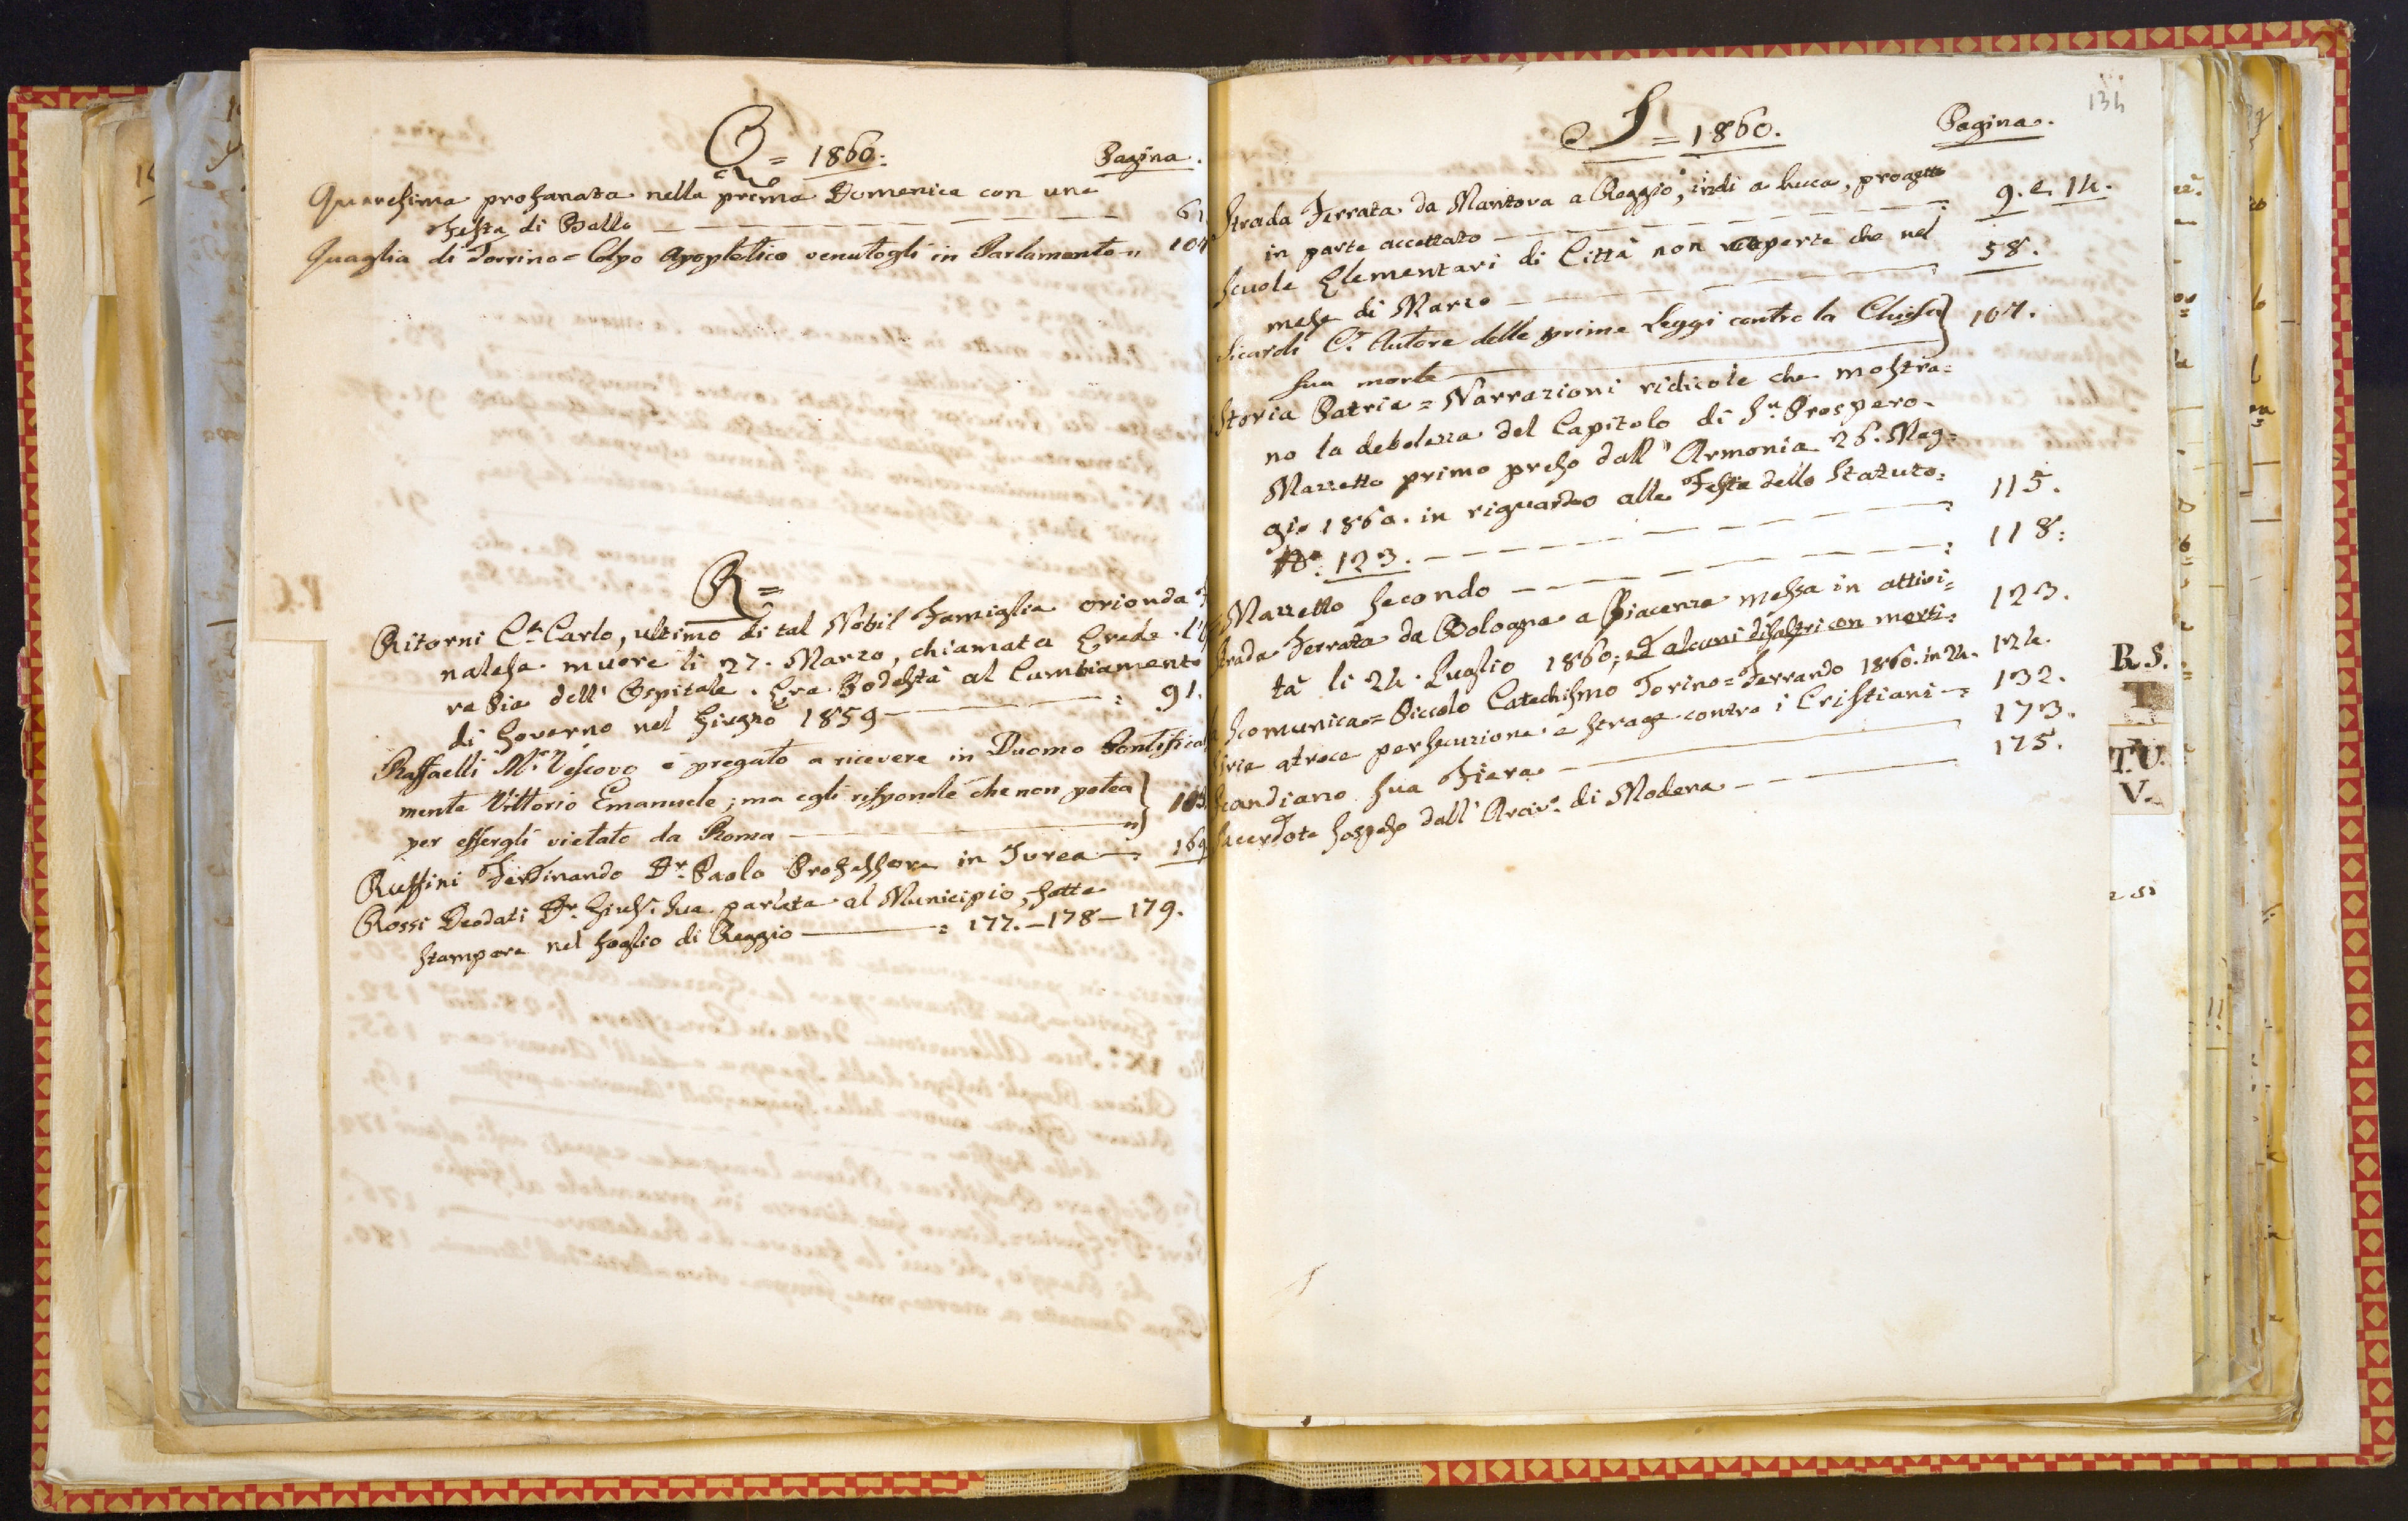 Q = 1860:
Pagina.
Quaresima profanata nella prima Domenica con una
Festa di Ballo 61
Quaglia di Torrino = Colpo Apopletico venutogli in Parlamento = 107
R =
Ritorni Cte Carlo, ultimo di tal Nobil Famiglia orionda
nalese muore li 27. Marzo, chiamata Erede l'
ra Pia dell' Ospitale. Era Podestà al Cambiamento
di Governo nel Giugno 1859 : 91.
Raffaelli Mr. Vescovo è pregato a ricevere in Duomo Pontifical
mente Vittorio Emanuele; ma egli risponde che non potea
per essergli vietato da Roma
Ruffini Ferdinando Dr. Paolo Professore in Ivrea 169
Rossi Deodati Dr. Gius. sua parlata al Municipio, fatta
stampare nel foglio di Reggio = 177. - 178 - 179.
134
S = 1860.
Pagina.
Strada Ferrata da Mantova a Reggio, indi a Lucca, progetto
in parte accettato : 9. e 14.
Scuole Elementari di Città non riaperte che nel
mese di Marzo 58.
Sicardi Ce. Autore delle prime Leggi contro la Chiesa } 107.
sua morte
Storia Patria = Narrazioni ridicole che mostra=
no la debolezza del Capitolo di Sn. Prospero.
Mazzetto primo preso dall' Armonia 26. Mag=
gio 1860. in riguardo alla Festa dello Statuto:
No: 123. : 115.
Mazzetto secondo : 118:
Strada Ferrata da Bologna a Piacenza messa in attivi=
tà li 24. Luglio 1860; ed alcuni disastri con morti: 123.
Scomunica = Piccolo Catechismo Torino = Ferrando 1860. in 24. 124.
Siria atroce persecuzione e strage contro i Cristiani = 132.
Scandiano sua Fiera 173.
Sacerdote sospeso dall' Arciv. di Modena 175.
R. S.
T.
T. U.
V.